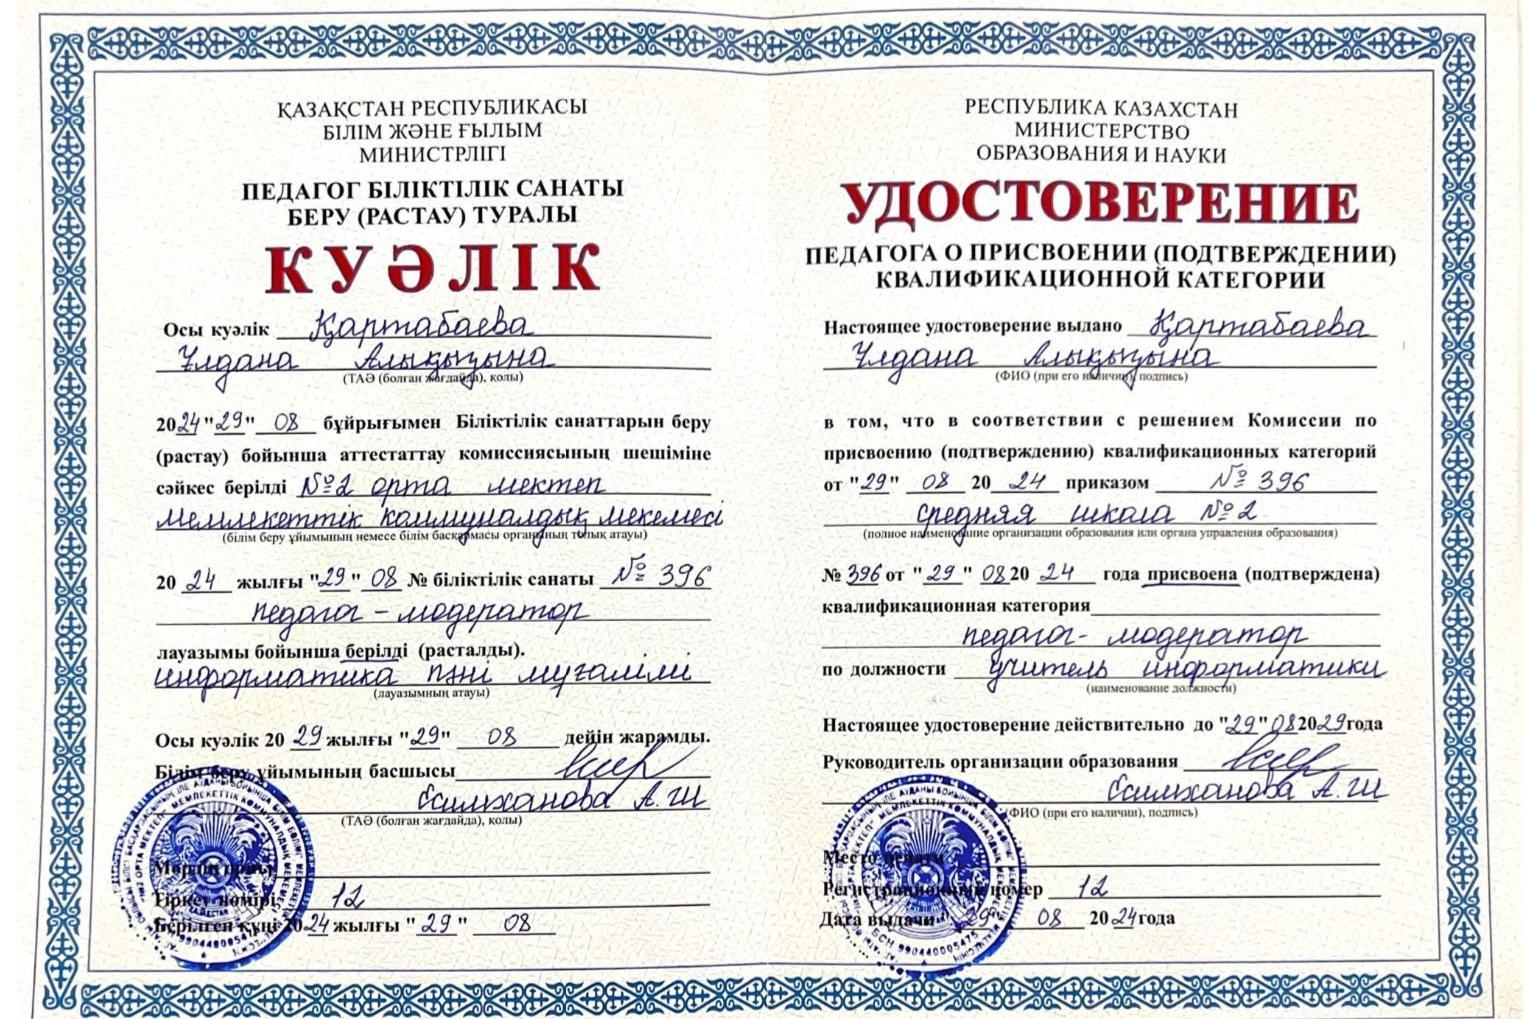 ҚАЗАҚСТАН РЕСПУБЛИКАСЫ
БІЛІМ ЖӘНЕ ҒЫЛЫМ
МИНИСТРЛІГІ
ПЕДАГОГ БІЛІКТІЛІК САНАТЫ
БЕРУ (РАСТАУ) ТУРАЛЫ
КУӘЛІК
Осы куәлік Қартабаева
Ұлдана Алықызына
(ТАӘ (болған жағдайда), колы)
2024 "29" 08 бұйрығымен Біліктілік санаттарын беру
(растау) бойынша аттестаттау комиссиясының шешіміне
сәйкес берілді №2 орта мектеп
мемлекеттік коммуналдық мекемесі
(білім беру ұйымының немесе білім басқармасы органының толық атауы)
20 24 жылғы "29" 08 № біліктілік санаты № 396
педагог - модератор
лауазымы бойынша берілді (расталды).
информатика пәні мұғалімі
(лауазымның атауы)
Осы куәлік 20 29 жылғы "29" 08 дейін жарамды.
Білім беру ұйымының басшысы
Есимханова А.Ш
(ТАӘ (болған жағдайда), колы)
Мөрдің орны
Тіркеу нөмірі 12
Берілген күні 2024 жылғы "29" 08
РЕСПУБЛИКА КАЗАХСТАН
МИНИСТЕРСТВО
ОБРАЗОВАНИЯ И НАУКИ
УДОСТОВЕРЕНИЕ
ПЕДАГОГА О ПРИСВОЕНИИ (ПОДТВЕРЖДЕНИИ)
КВАЛИФИКАЦИОННОЙ КАТЕГОРИИ
Настоящее удостоверение выдано Қартабаева
Ұлдана Алықызына
(ФИО (при его наличии), подпись)
в том, что в соответствии с решением Комиссии по
присвоению (подтверждению) квалификационных категорий
от "29" 08 20 24 приказом № 396
средняя школа №2
(полное наименование организации образования или органа управления образования)
№ 396 от "29" 08 20 24 года присвоена (подтверждена)
квалификационная категория
педагог- модератор
по должности учитель информатики
(наименование должности)
Настоящее удостоверение действительно до "29" 08 2029 года
Руководитель организации образования
Есимханова А.Ш
(ФИО (при его наличии), подпись)
Место печати
Регистрационный номер 12
Дата выдачи "29" 08 20 24 года
БСН 990440005475